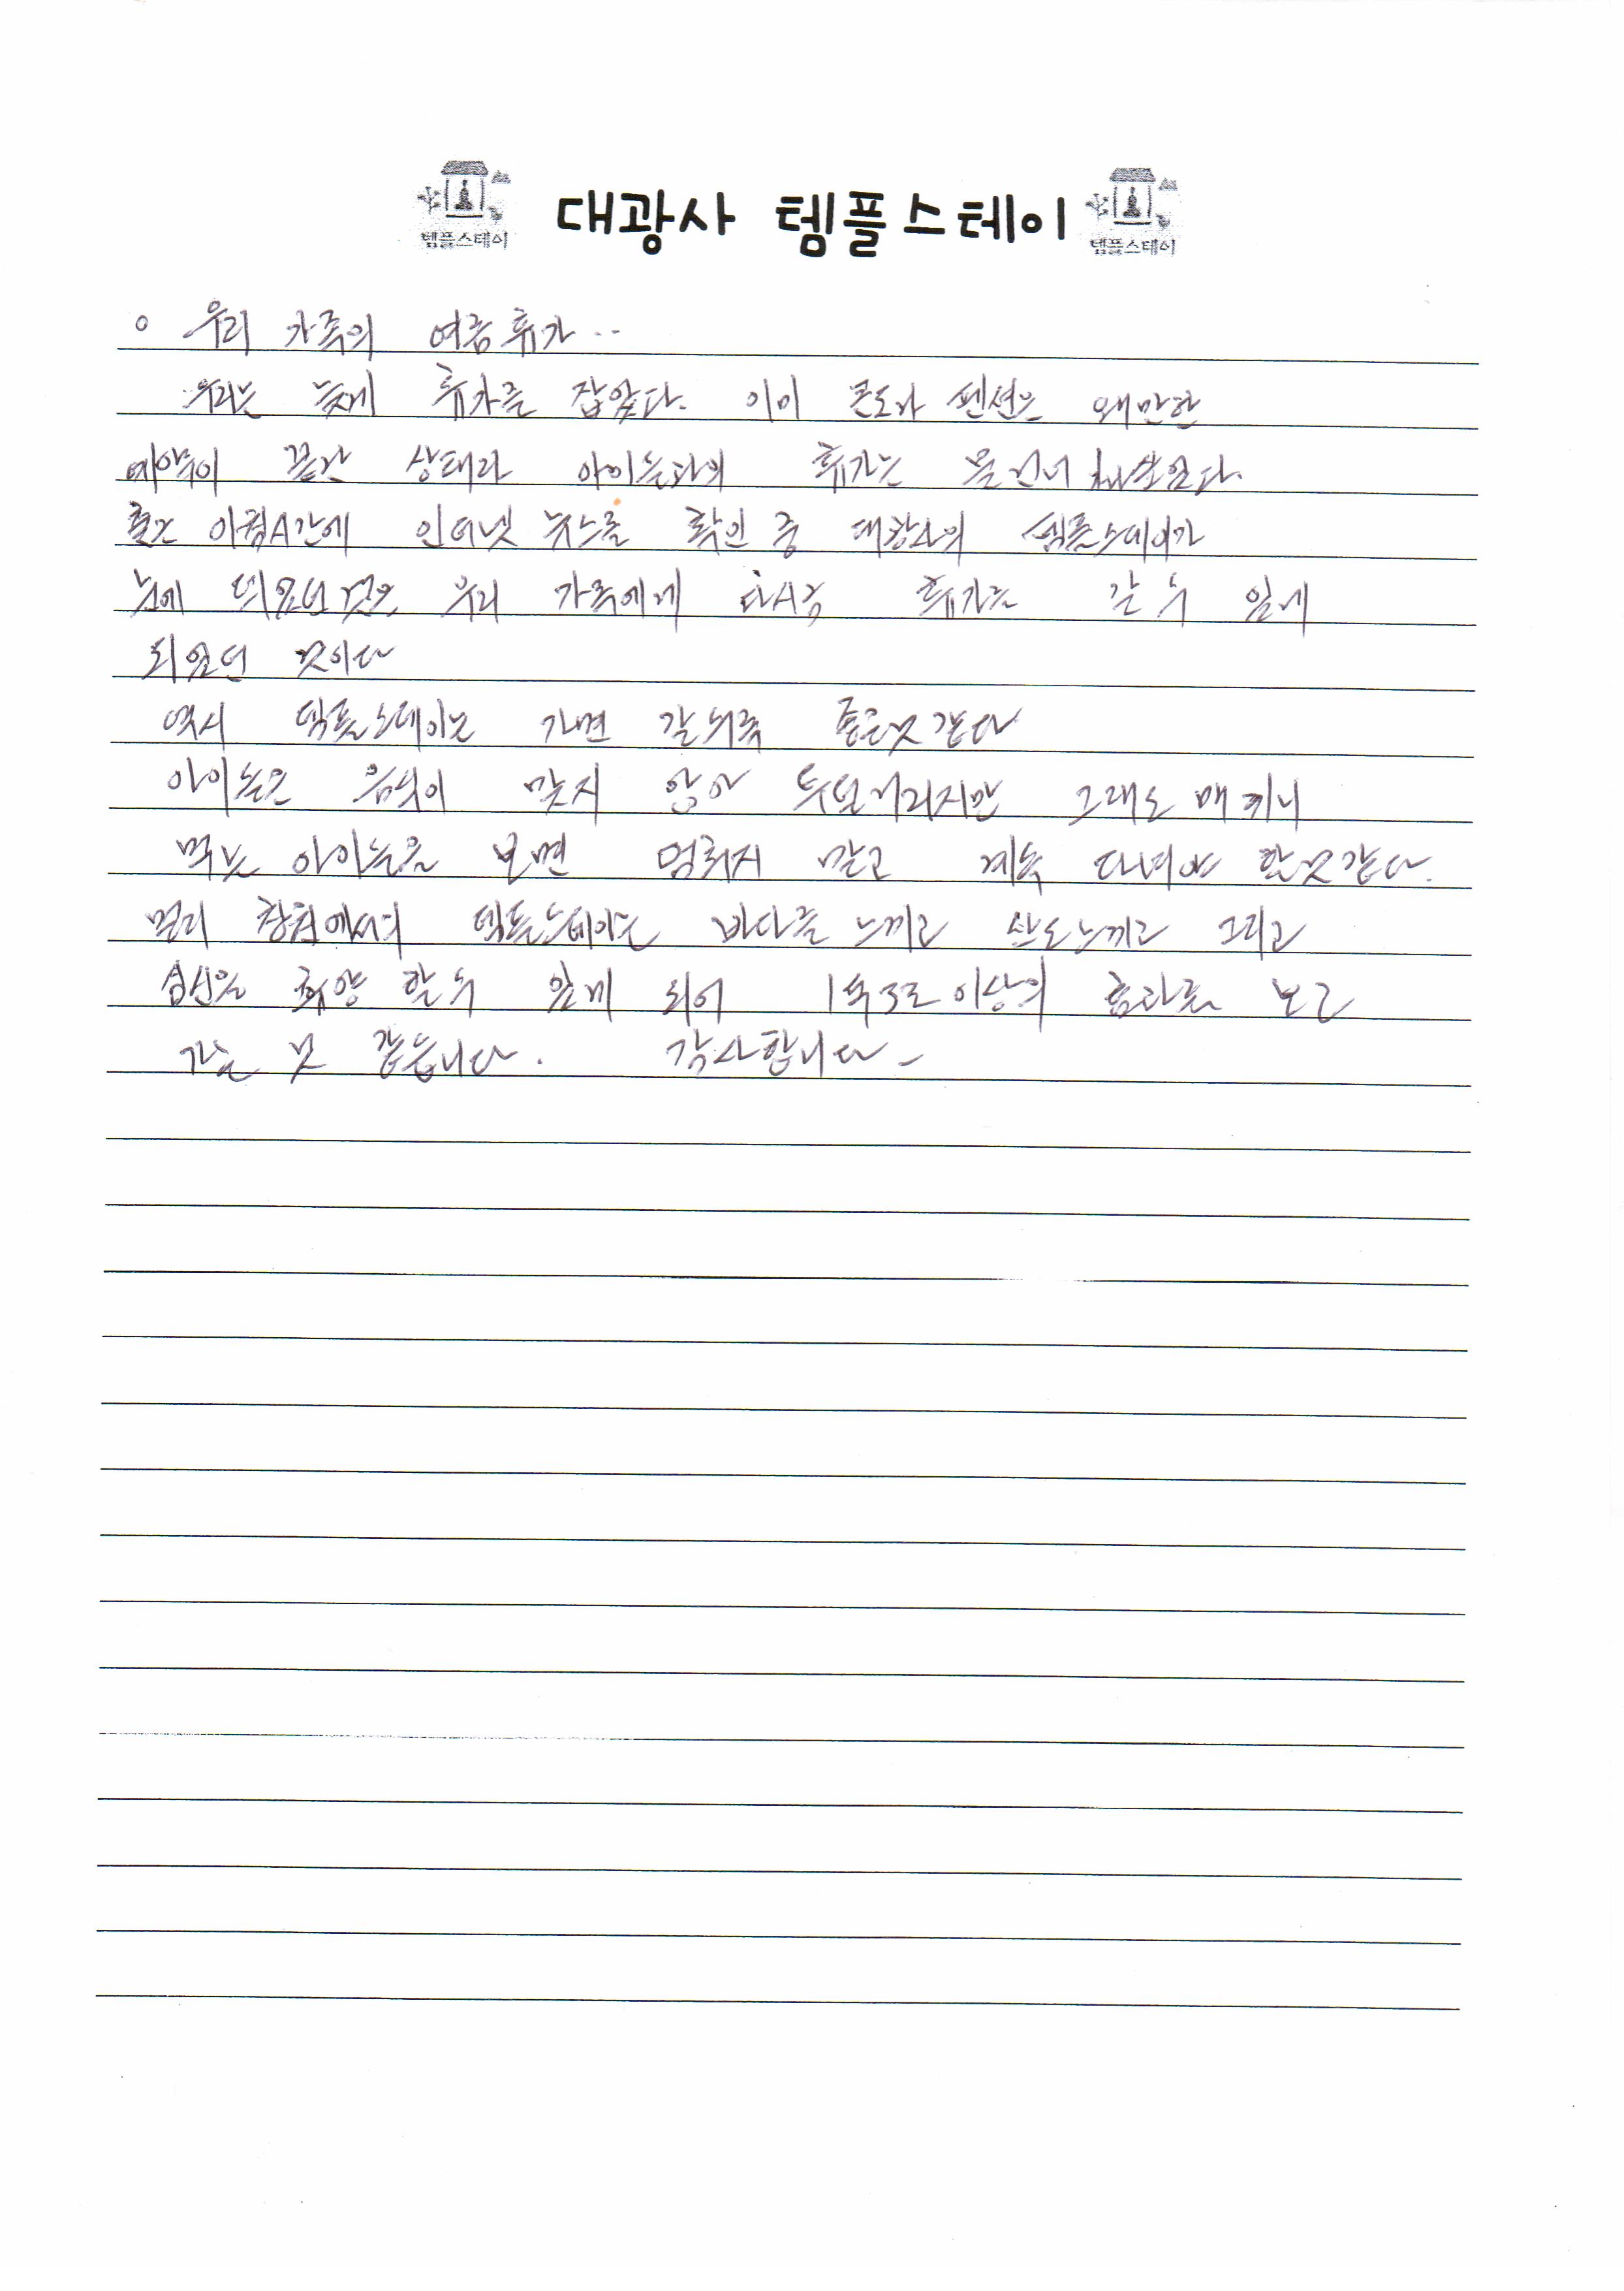 템플스테이 대광사 템플스테이 템플스테이
○ 우리 가족의 여름휴가..
우리는 늦게 휴가를 잡았다. 이미 콘도나 펜션은 왠만한
예약이 끝난 상태라 아이들과의 휴가는 물 건너
출근 아침시간에 인터넷 뉴스를 확인 중 대광사의 템플스테이가
눈에 띄었던 것은 우리 가족에게 다시금 휴가를 갈 수 있게
되었던 것이다
역시 템플스테이는 가면 갈수록 좋은것 같다
아이들은 음식이 맞지 않아 투덜거리지만 그래도 매 끼니
먹는 아이들을 보면 멈추지 말고 계속 다녀야 할것같다.
멀리 창원에서의 템플스테이는 바다를 느끼고 산도 느끼고 그리고
심신을 휴양 할 수 있게 되어 1석3조 이상의 효과를 보고
가는 것 같습니다. 감사합니다